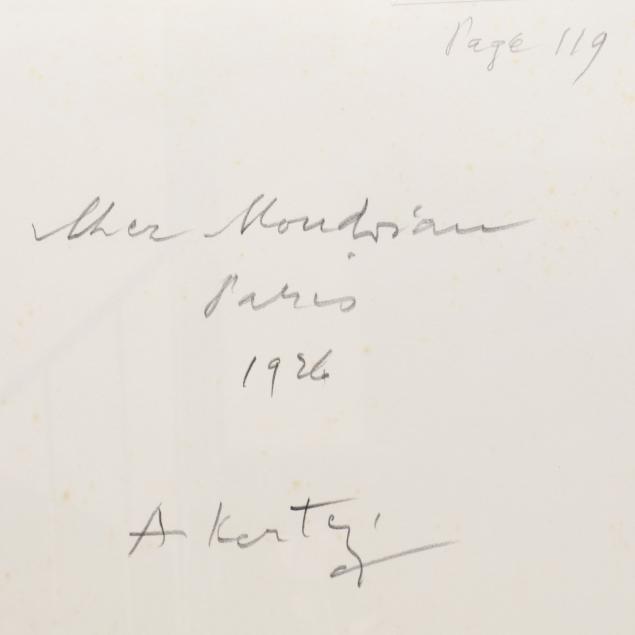 Page 119
Chez Mondrian
Paris
1926
A Kertész